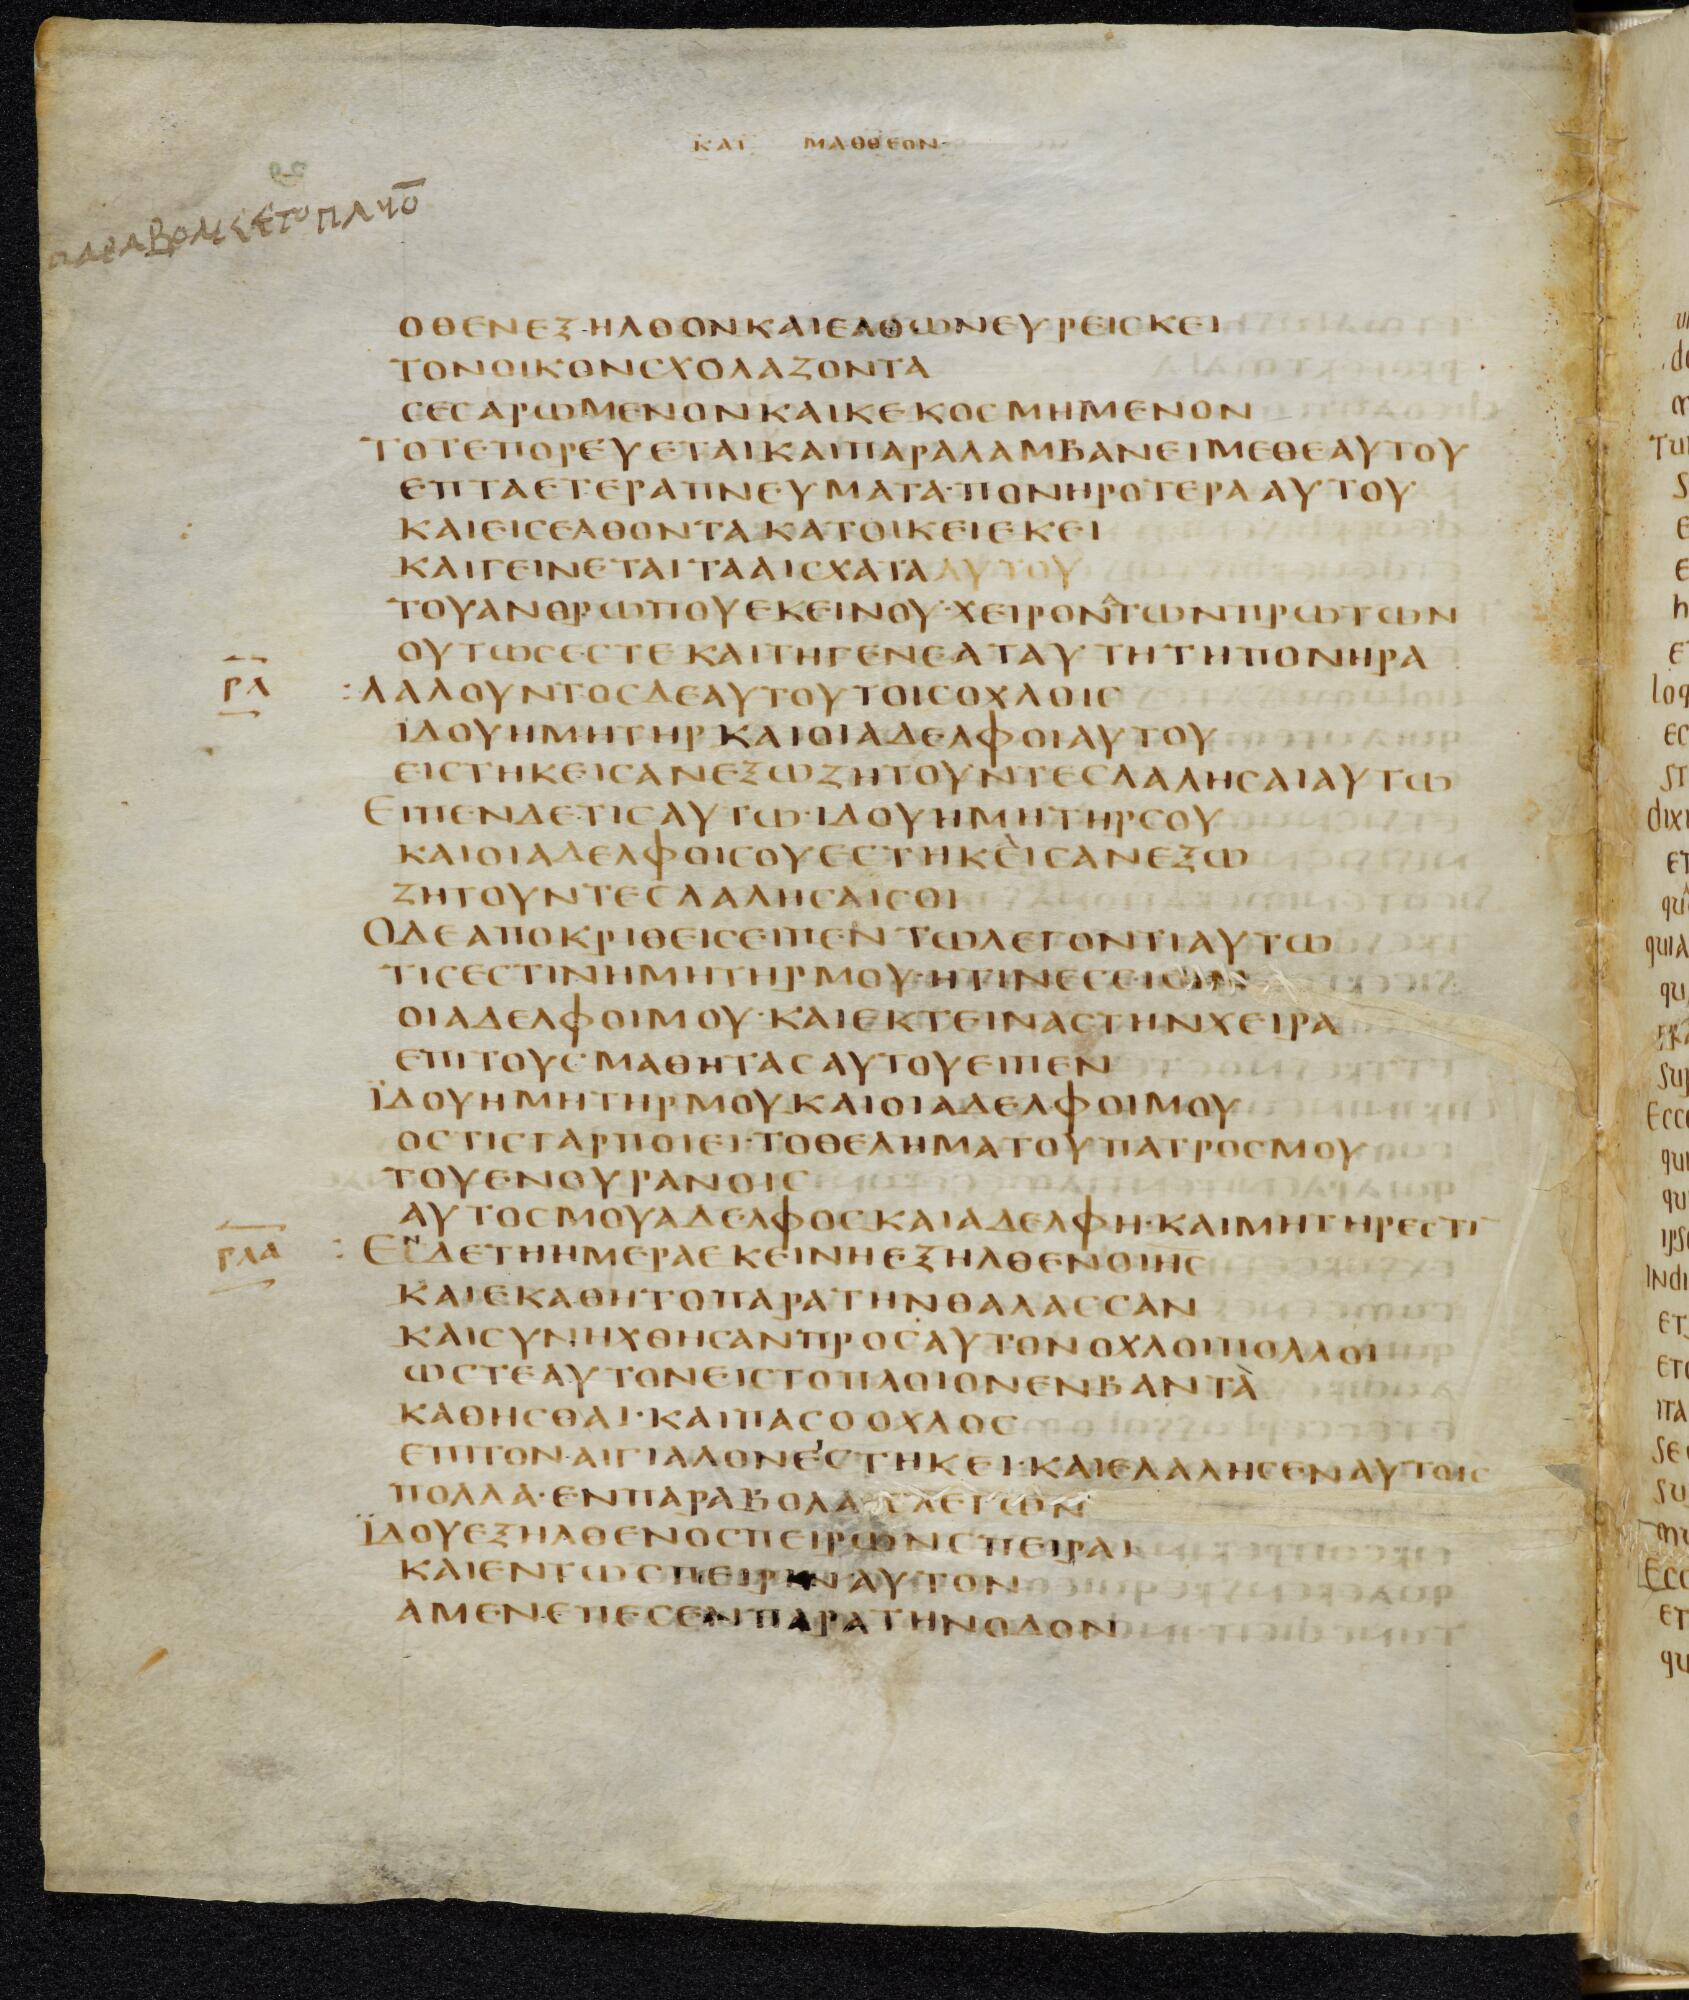 ΚΑΤ ΜΑΘΘΕΟΝ·
ΟΘΕΝΕΞΗΛΘΟΝΚΑΙΕΛΘΩΝΕΥΡΕΙϹΚΕΙ
ΤΟΝΟΙΚΟΝϹΧΟΛΑΖΟΝΤΑ
ϹΕϹΑΡΩΜΕΝΟΝΚΑΙΚΕΚΟϹΜΗΜΕΝΟΝ
ΤΟΤΕΠΟΡΕΥΕΤΑΙΚΑΙΠΑΡΑΛΑΜΒΑΝΕΙΜΕΘΕΑΥΤΟΥ
ΕΠΤΑΕΤΕΡΑΠΝΕΥΜΑΤΑ·ΠΟΝΗΡΟΤΕΡΑΑΥΤΟΥ·
ΚΑΙΕΙϹΕΛΘΟΝΤΑΚΑΤΟΙΚΕΙΕΚΕΙ
ΚΑΙΓΕΙΝΕΤΑΙΤΑΑΙϹΧΑΤΑΑΥΤΟΥ
ΤΟΥΑΝΘΡΩΠΟΥΕΚΕΙΝΟΥ·ΧΕΙΡΟΝΤΩΝΠΡΩΤΩΝ
ΟΥΤΩϹΕϹΤΕΚΑΙΤΗΓΕΝΕΑΤΑΥΤΗΤΗΠΟΝΗΡΑ
ΡΛ :ΛΑΛΟΥΝΤΟϹΔΕΑΥΤΟΥΤΟΙϹΟΧΛΟΙϹ
ΙΔΟΥΗΜΗΤΗΡΚΑΙΟΙΑΔΕΛΦΟΙΑΥΤΟΥ
ΕΙϹΤΗΚΕΙϹΑΝΕΞΩΖΗΤΟΥΝΤΕϹΛΑΛΗϹΑΙΑΥΤΩ
ΕΙΠΕΝΔΕΤΙϹΑΥΤΩ·ΙΔΟΥΗΜΗΤΗΡϹΟΥ
ΚΑΙΟΙΑΔΕΛΦΟΙϹΟΥΕϹΤΗΚΕΙϹΑΝΕΞΩ
ΖΗΤΟΥΝΤΕϹΛΑΛΗϹΑΙϹΟΙ
ΟΔΕΑΠΟΚΡΙΘΕΙϹΕΙΠΕΝΤΩΛΕΓΟΝΤΙΑΥΤΩ
ΤΙϹΕϹΤΙΝΗΜΗΤΗΡΜΟΥ·ΗΤΙΝΕϹΕΙϹΙΝ
ΟΙΑΔΕΛΦΟΙΜΟΥ·ΚΑΙΕΚΤΕΙΝΑϹΤΗΝΧΕΙΡΑ
ΕΠΙΤΟΥϹΜΑΘΗΤΑϹΑΥΤΟΥΕΙΠΕΝ
ΪΔΟΥΗΜΗΤΗΡΜΟΥΚΑΙΟΙΑΔΕΛΦΟΙΜΟΥ
ΟϹΤΙϹΓΑΡΠΟΙΕΙ·ΤΟΘΕΛΗΜΑΤΟΥΠΑΤΡΟϹΜΟΥ
ΤΟΥΕΝΟΥΡΑΝΟΙϹ
ΑΥΤΟϹΜΟΥΑΔΕΛΦΟϹΚΑΙΑΔΕΛΦΗ·ΚΑΙΜΗΤΗΡΕϹΤΙ̅
ΡΛΑ :ΕΝΔΕΤΗΗΜΕΡΑΕΚΕΙΝΗΕΞΗΛΘΕΝΟΙΗϹ
ΚΑΙΕΚΑΘΗΤΟΠΑΡΑΤΗΝΘΑΛΑϹϹΑΝ
ΚΑΙϹΥΝΗΧΘΗϹΑΝΠΡΟϹΑΥΤΟΝΟΧΛΟΙΠΟΛΛΟΙ
ΩϹΤΕΑΥΤΟΝΕΙϹΤΟΠΛΟΙΟΝΕΝΒΑΝΤΑ
ΚΑΘΗϹΘΑΙ·ΚΑΙΠΑϹΟΟΧΛΟϹ
ΕΠΙΤΟΝΑΙΓΙΑΛΟΝΕϹΤΗΚΕΙ·ΚΑΙΕΛΑΛΗϹΕΝΑΥΤΟΙϹ
ΠΟΛΛΑ·ΕΝΠΑΡΑΒΟΛΑΙϹΛΕΓΩΝ
ΪΔΟΥΕΞΗΛΘΕΝΟϹΠΕΙΡΩΝϹΠΕΙΡΑΙ
ΚΑΙΕΝΤΩϹΠΕΙΡΙΝΑΥΤΟΝ
ΑΜΕΝΕΠΕϹΕΝΠΑΡΑΤΗΝΟΔΟΝ